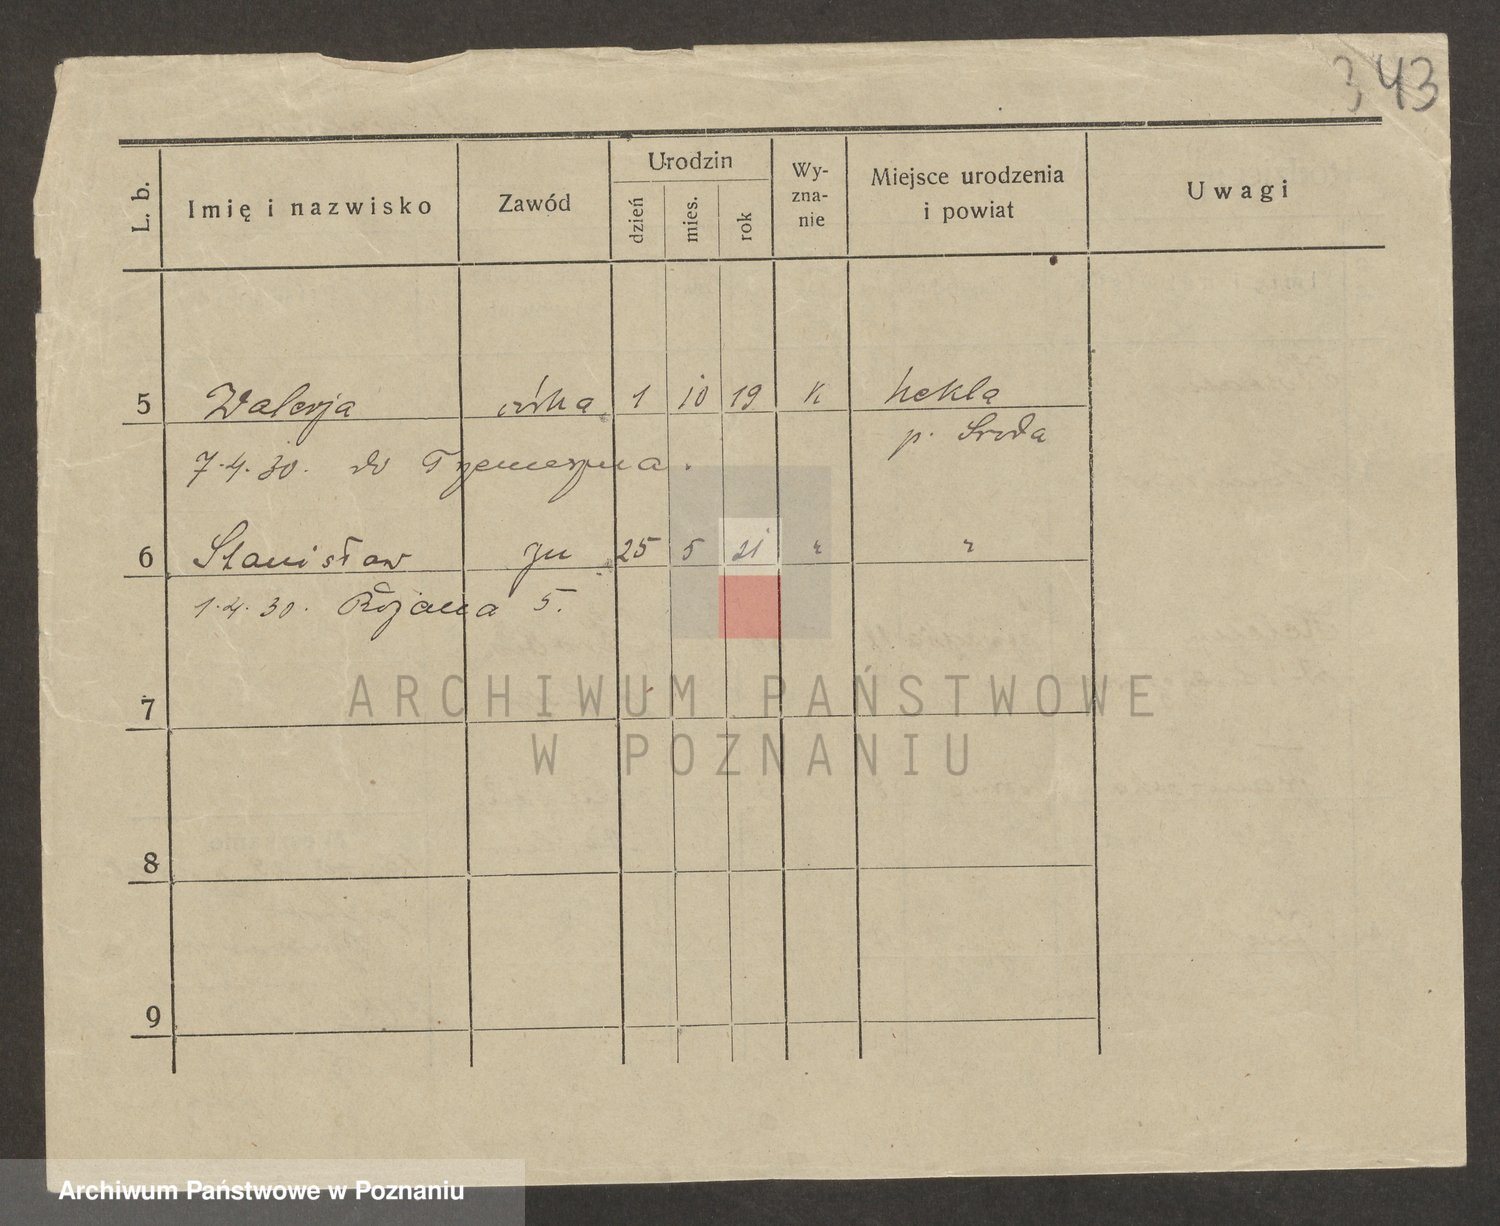 343
L. b.
Imię i nazwisko
Zawód
Urodzin
dzień
mies.
rok
Wy-
zna-
nie
Miejsce urodzenia
i powiat
Uwagi
5 Walerja córka 1 10 19 K Nekla
p. Sroda
7.4.30. do Trzemeszna.
6 Stanisław syn 25 5 21 " "
1.4.30. 5.
7
8
9
ARCHIWUM PAŃSTWOWE
W POZNANIU
Archiwum Państwowe w Poznaniu